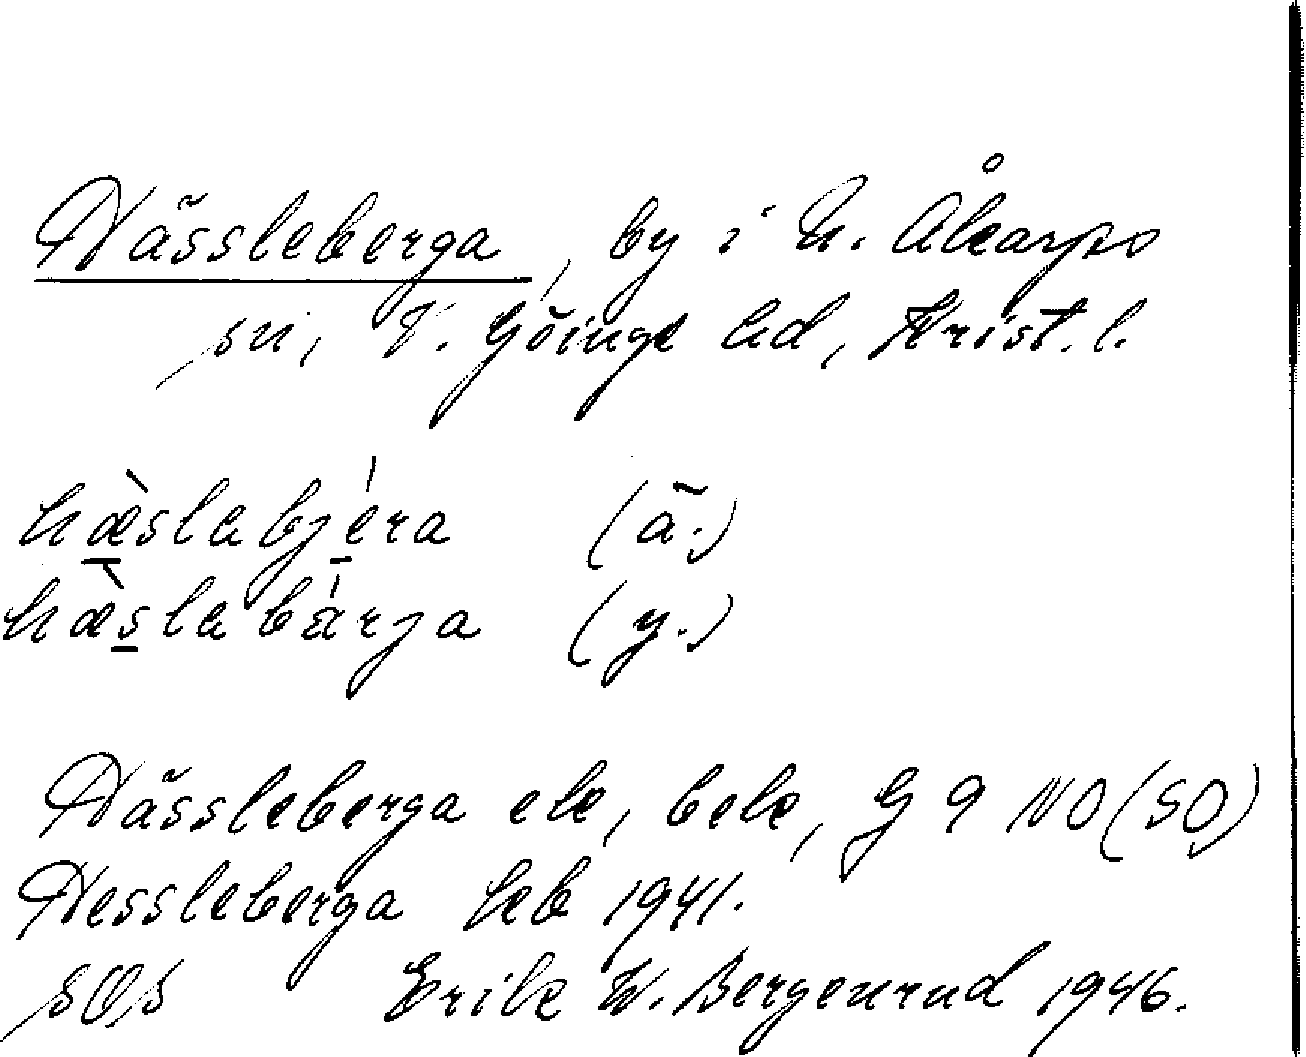 Hässleberga, by i N. Åkarps
sn, V. Göinge hd, Krist. l.
hæ̀slabjéra (ä.)
hæ̀slabárja (y.)
Hässleberga ek, bebk, G 9 NO (SO)
Hessleberga keb 1941.
SOS Erik W. Bergenrud 1946.